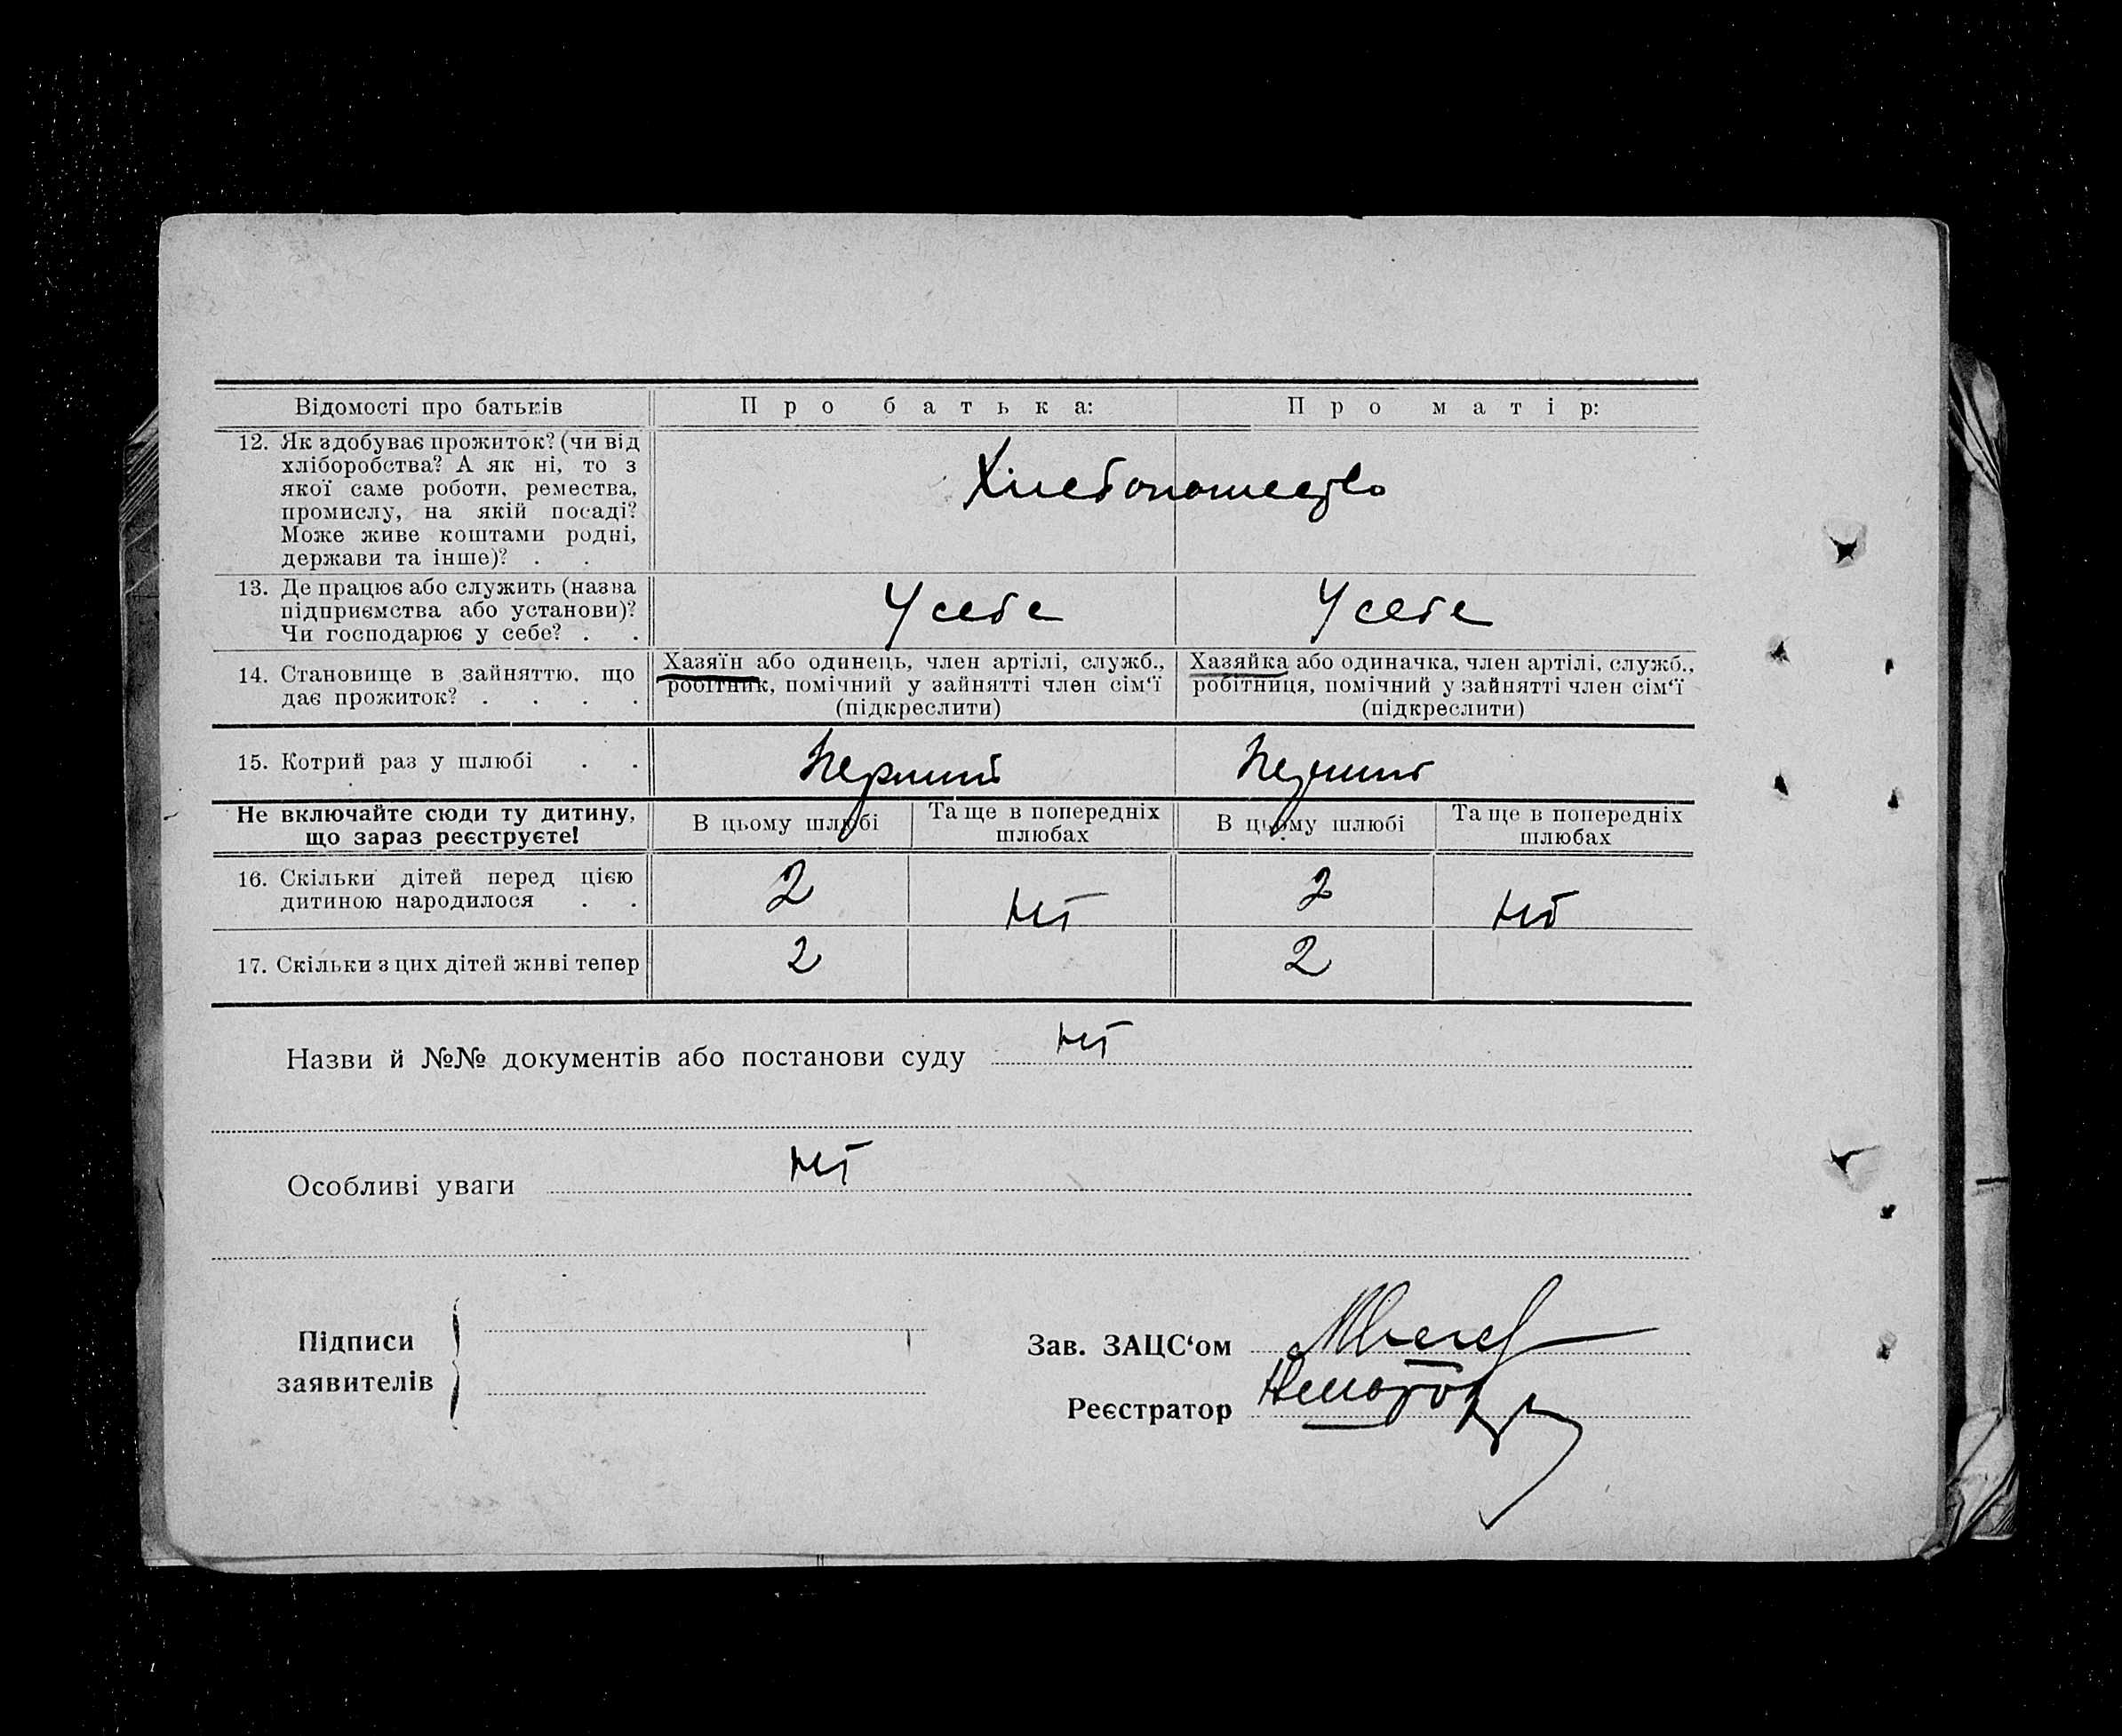 Відомості про батьків
Про батька:
Про матір:
12. Як здобуває прожиток? (чи від
хліборобства? А як ні, то з
якої саме роботи, ремества,
промислу, на якій посаді?
Може живе коштами родні,
держави та інше)? . .
Хлебопашество
13. Де працює або служить (назва
підприємства або установи)?
Чи господарює у себе? . .
У себе
У себе
14. Становище в зайняттю, що
дає прожиток? . . . .
Хазяїн або одинець, член артілі, служб.,
робітник, помічний у зайнятті член сім‘ї
(підкреслити)
Хазяйка або одиначка, член артілі, служб.,
робітниця, помічний у зайнятті член сім‘ї
(підкреслити)
15. Котрий раз у шлюбі . .
Первий
Первий
Не включайте сюди ту дитину,
що зараз реєструєте!
В цьому шлюбі
Та ще в попередніх
шлюбах
В цьому шлюбі
Та ще в попередніх
шлюбах
16. Скільки дітей перед цією
дитиною народилося . .
2
Ні
2
Ні
17. Скільки з цих дітей живі тепер
2
2
Назви й №№ документів або постанови суду
Ні
Особливі уваги
Ні
Підписи
заявителів
Зав. ЗАЦС‘ом
Реєстратор